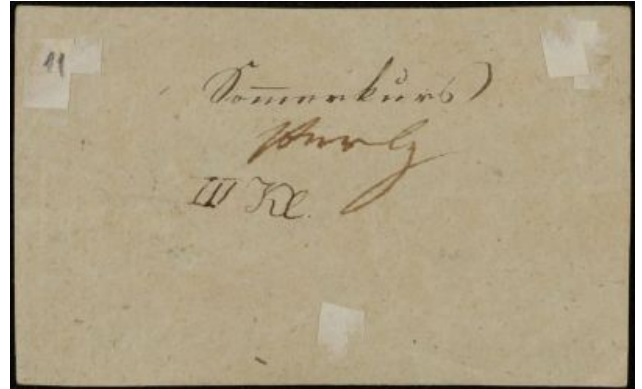 11
Sommerkurs
III Kl.